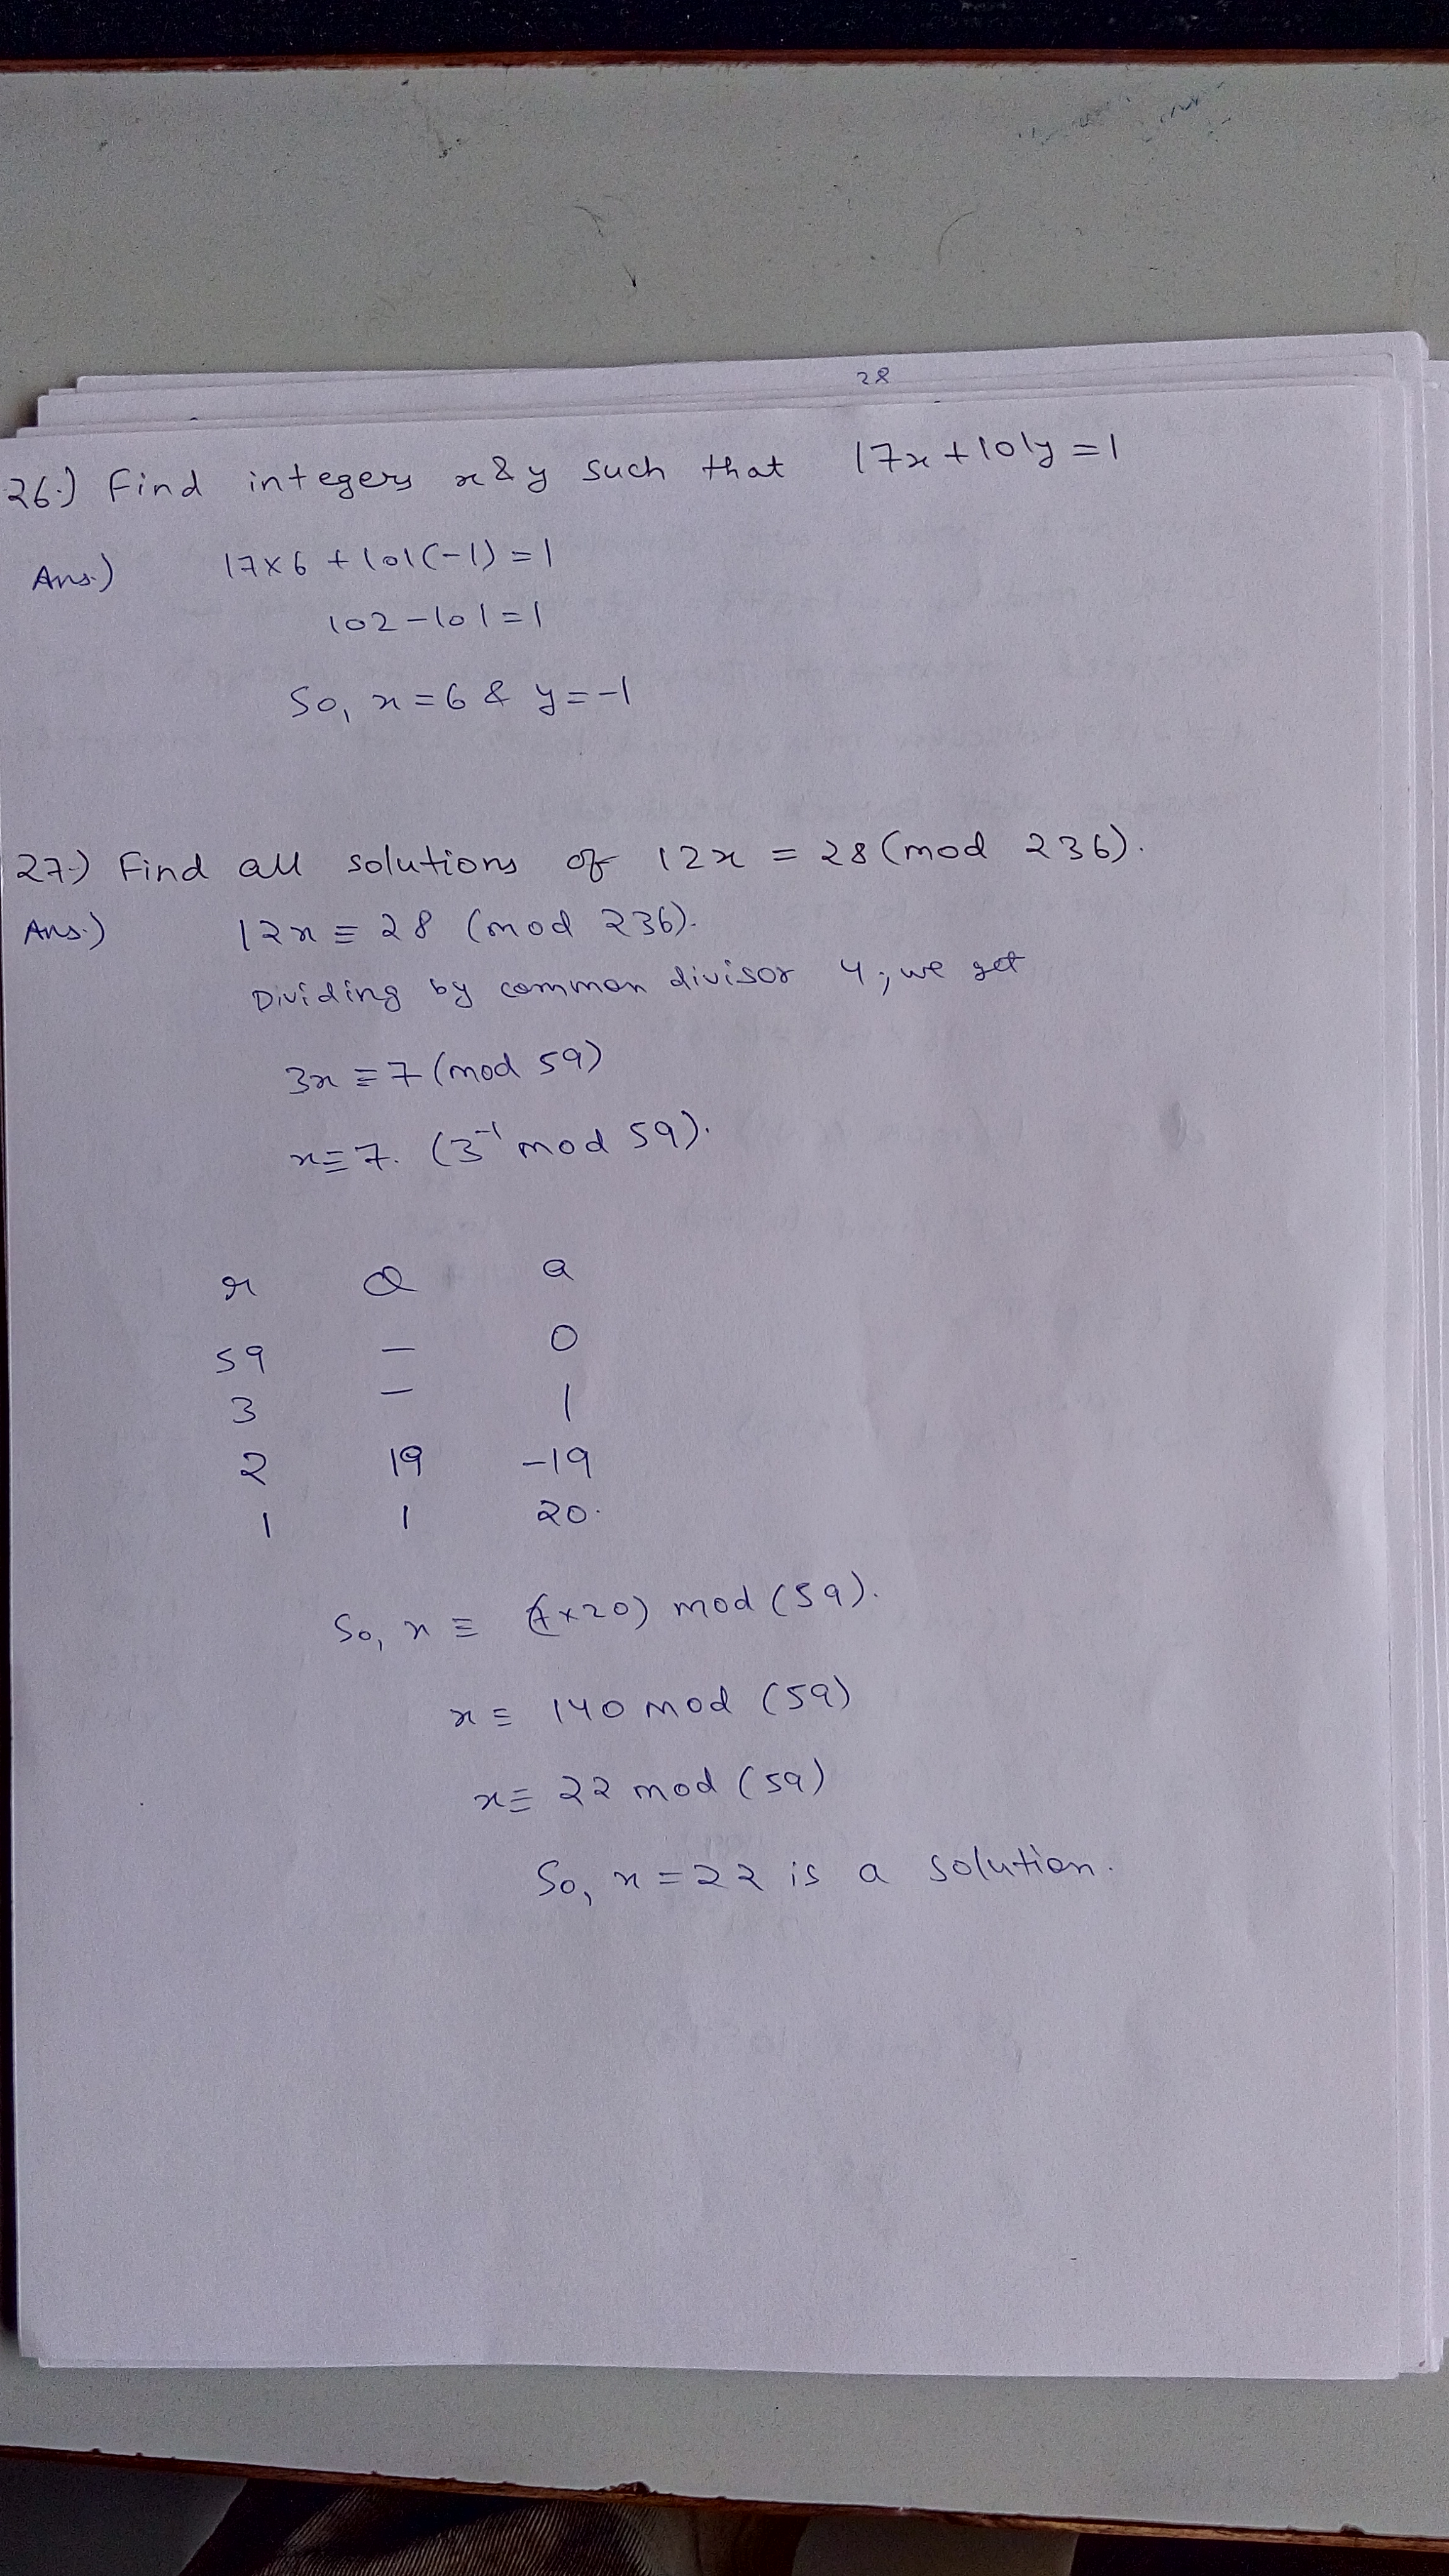 28
26.) Find integers x & y such that 17x + 101y = 1
Ans.) 17 x 6 + 101(-1) = 1
102 - 101 = 1
So, x = 6 & y = -1
27.) Find all solutions of 12x = 28 (mod 236).
Ans.) 12x ≡ 28 (mod 236).
Dividing by common divisor 4, we get
3x ≡ 7 (mod 59)
x ≡ 7. (3⁻¹ mod 59).
r Q a
59 - 0
3 - 1
2 19 -19
1 1 20.
So, x ≡ (7x20) mod (59).
x ≡ 140 mod (59)
x ≡ 22 mod (59)
So, x = 22 is a solution.